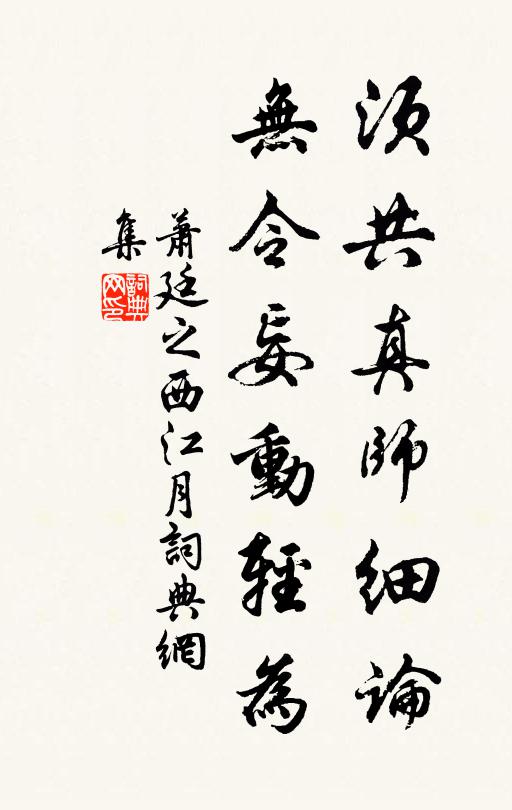 須共真師細論
無令妄動輕為
蕭廷之西江月詞典網
集
詞典
网印